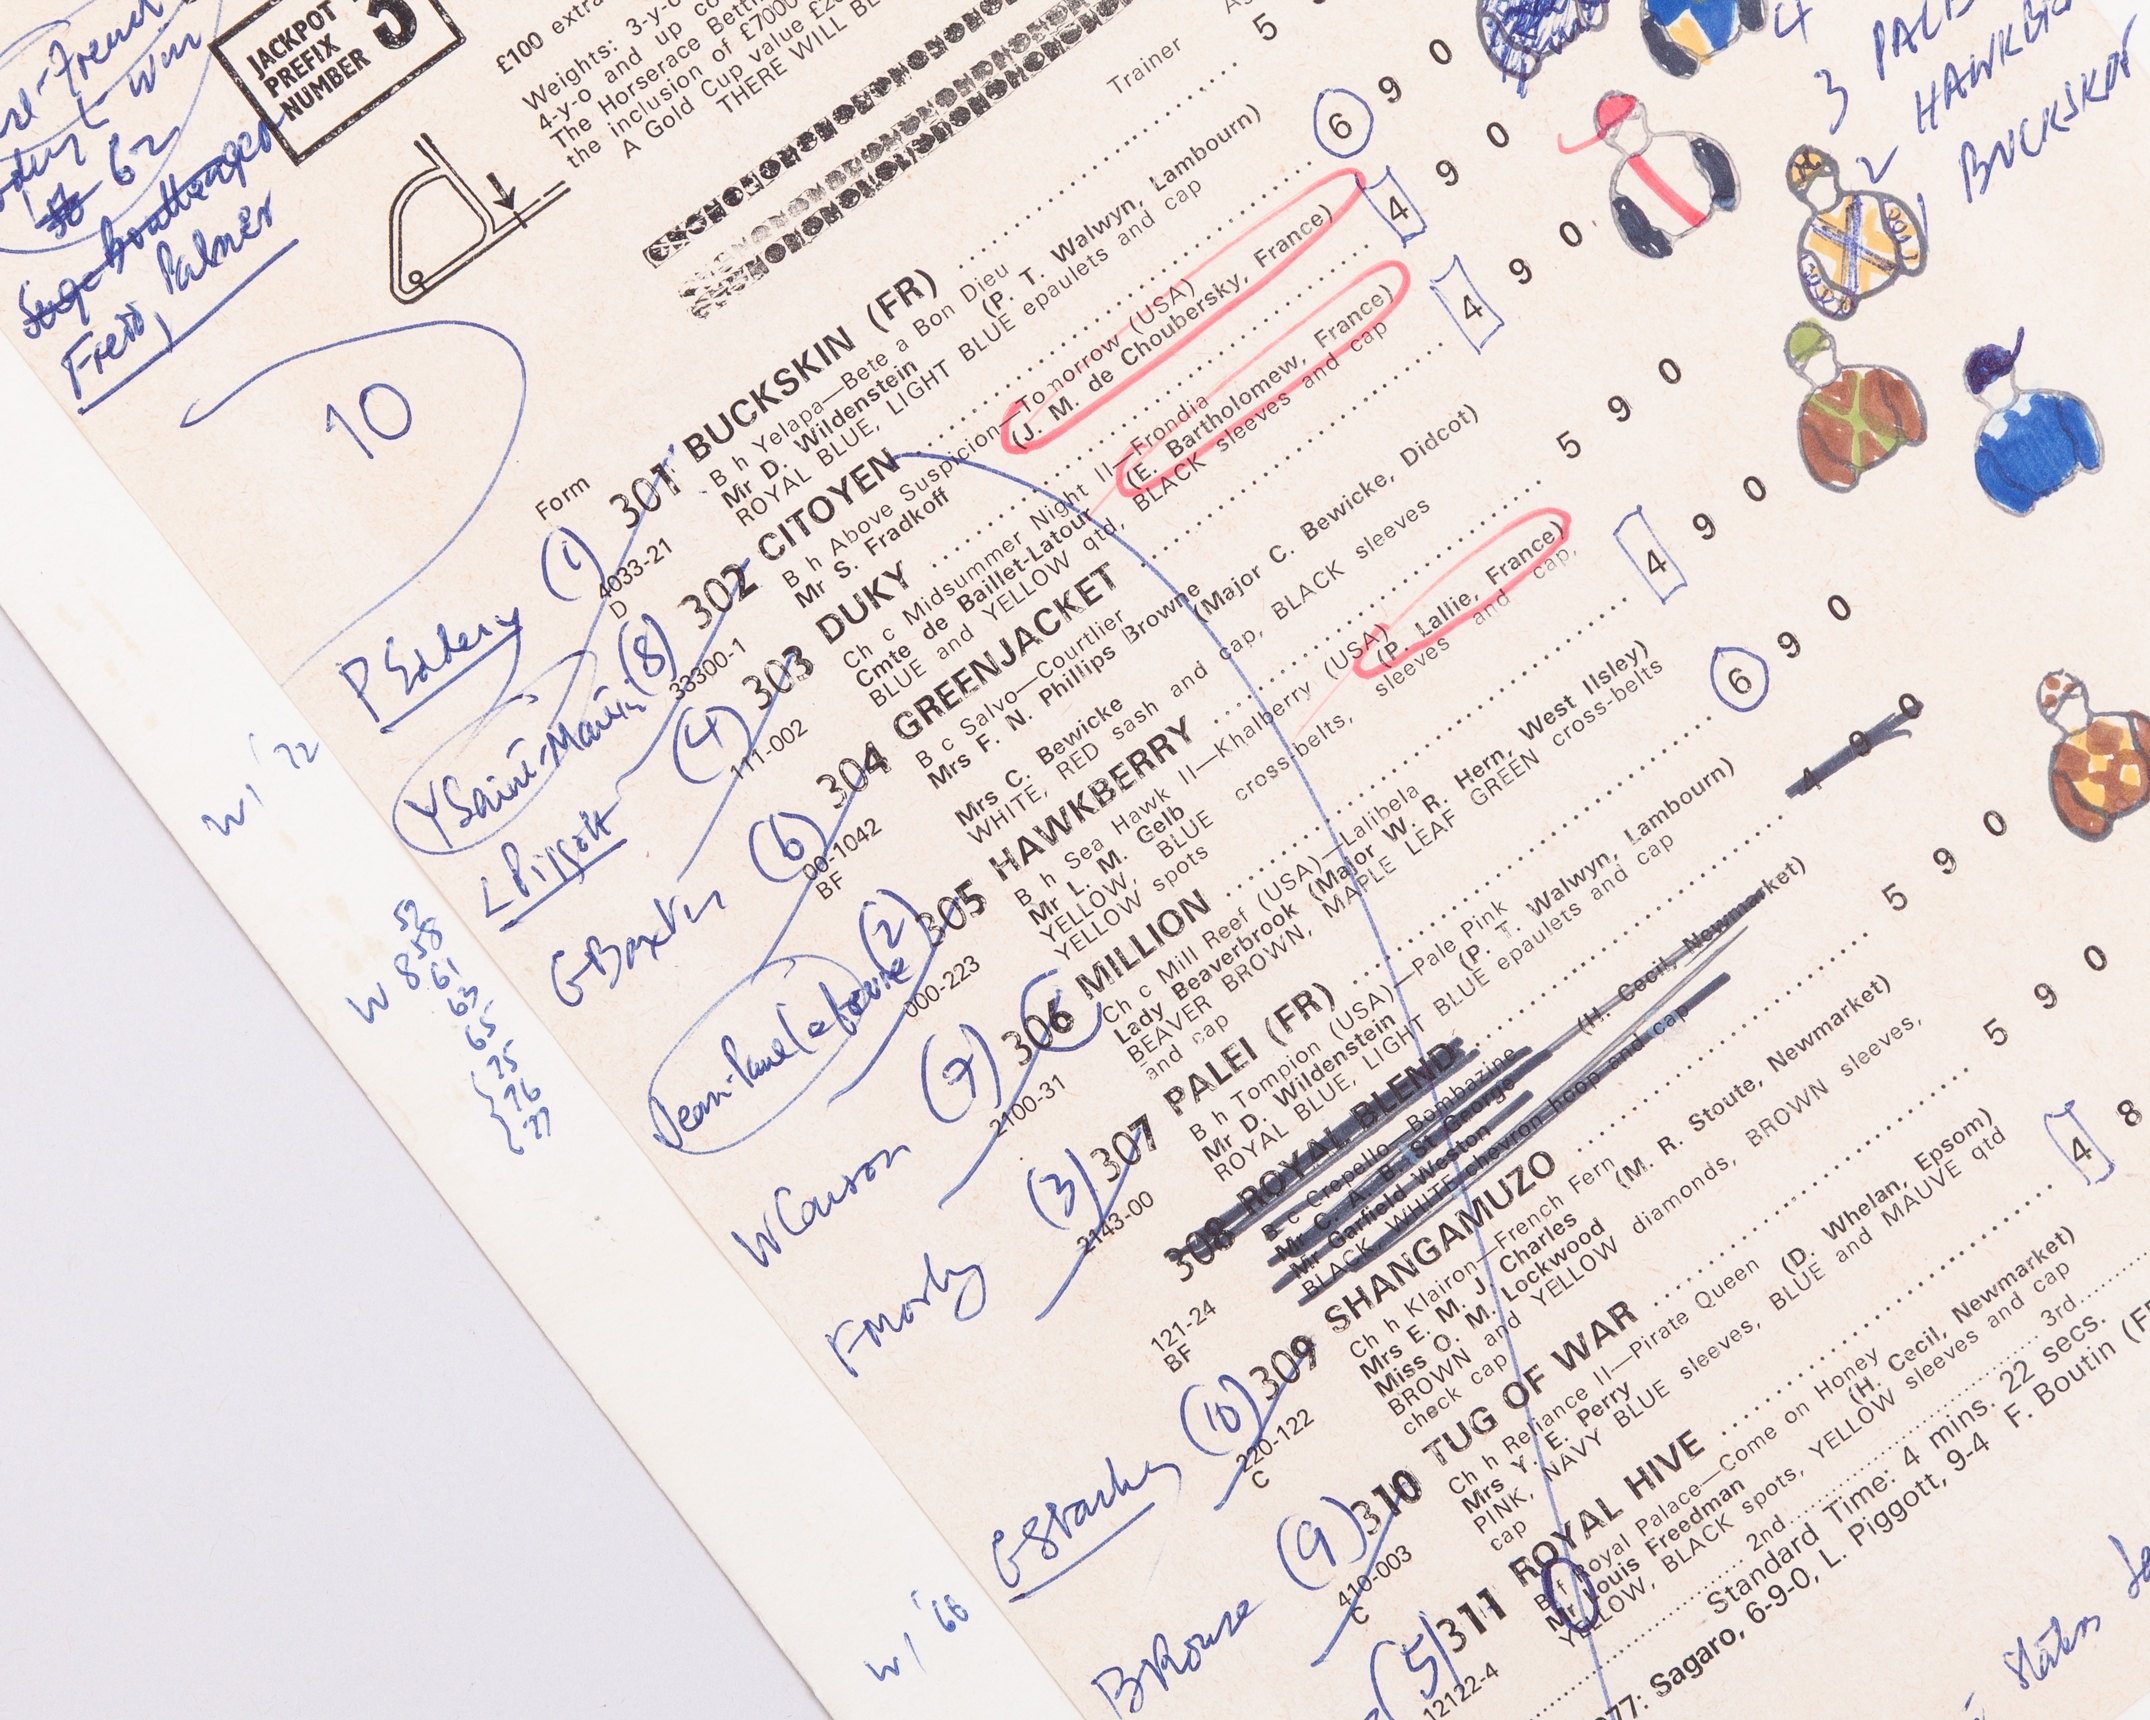 JACKPOT
PREFIX
NUMBER 3
£100 extra
Weights: 3-y-o
4-y-o and up
The Horserace Betti
the inclusion of £7000
A Gold Cup value £2
THERE WILL B
62
Fred Palmer
10
4
3
2 HAWKB
1 BUCKSK
Form
Trainer
P Eddery (1) 301 BUCKSKIN (FR) 5 9 0
4033-21 B h Yelapa—Bete a Bon Dieu
D Mr D. Wildenstein (P. T. Walwyn, Lambourn)
ROYAL BLUE, LIGHT BLUE epaulets and cap
Y Saint-Martin (8) 302 CITOYEN 6 9 0
33300-1 B h Above Suspicion—Tomorrow (USA)
Mr S. Fradkoff (J. M. de Choubersky, France)
L Piggott (4) 303 DUKY 4 9 0
111-002 Ch c Midsummer Night II—Frondia
Cmte de Baillet-Latour (E. Bartholomew, France)
BLUE and YELLOW qtd, BLACK sleeves and cap
G Baxter (6) 304 GREENJACKET 4 9 0
000-1042 B c Salvo—Courtlier
BF Mrs F. N. Phillips Browne
Mrs C. Bewicke (Major C. Bewicke, Didcot)
WHITE, RED sash and cap, BLACK sleeves
(2) 305 HAWKBERRY 5 9 0
000-223 B h Sea Hawk II—Khalberry (USA)
Mr L. M. Gelb (P. Lallie, France)
YELLOW, BLUE cross-belts, sleeves and cap,
YELLOW spots
W Carson (7) 306 MILLION 4 9 0
2100-31 Ch c Mill Reef (USA)—Lalibela
Lady Beaverbrook (Major W. R. Hern, West Ilsley)
BEAVER BROWN, MAPLE LEAF GREEN cross-belts
and cap
F Morby (3) 307 PALEI (FR) 6 9 0
2143-00 B h Tompion (USA)—Pale Pink
Mr D. Wildenstein (P. T. Walwyn, Lambourn)
ROYAL BLUE, LIGHT BLUE epaulets and cap
308 ROYAL BLEND 4 9 0
121-24 B c Crepello—Bombazine
BF Mr C. A. B. St George
Mr Garfield Weston (H. Cecil, Newmarket)
BLACK, WHITE chevron hoop and cap
G Starkey (10) 309 SHANGAMUZO 5 9 0
220-122 Ch h Klairon—French Fern
C Mrs E. M. J. Charles
Miss O. M. Lockwood (M. R. Stoute, Newmarket)
BROWN and YELLOW diamonds, BROWN sleeves,
check cap
B Rouse (9) 310 TUG OF WAR 5 9 0
410-003 Ch h Reliance II—Pirate Queen
C Mrs Y. E. Perry (D. Whelan, Epsom)
PINK, NAVY BLUE sleeves, BLUE and MAUVE qtd
cap
(5) 311 ROYAL HIVE 4 8
12122-4 B f Royal Palace—Come on Honey
Mr Louis Freedman (H. Cecil, Newmarket)
YELLOW, BLACK spots, YELLOW sleeves and cap
2nd 3rd
Standard Time: 4 mins. 22 secs.
77: Sagaro, 6-9-0, L. Piggott, 9-4 F. Boutin (F
W '72
W 8 58
61
63
65
75
76
77
W '66